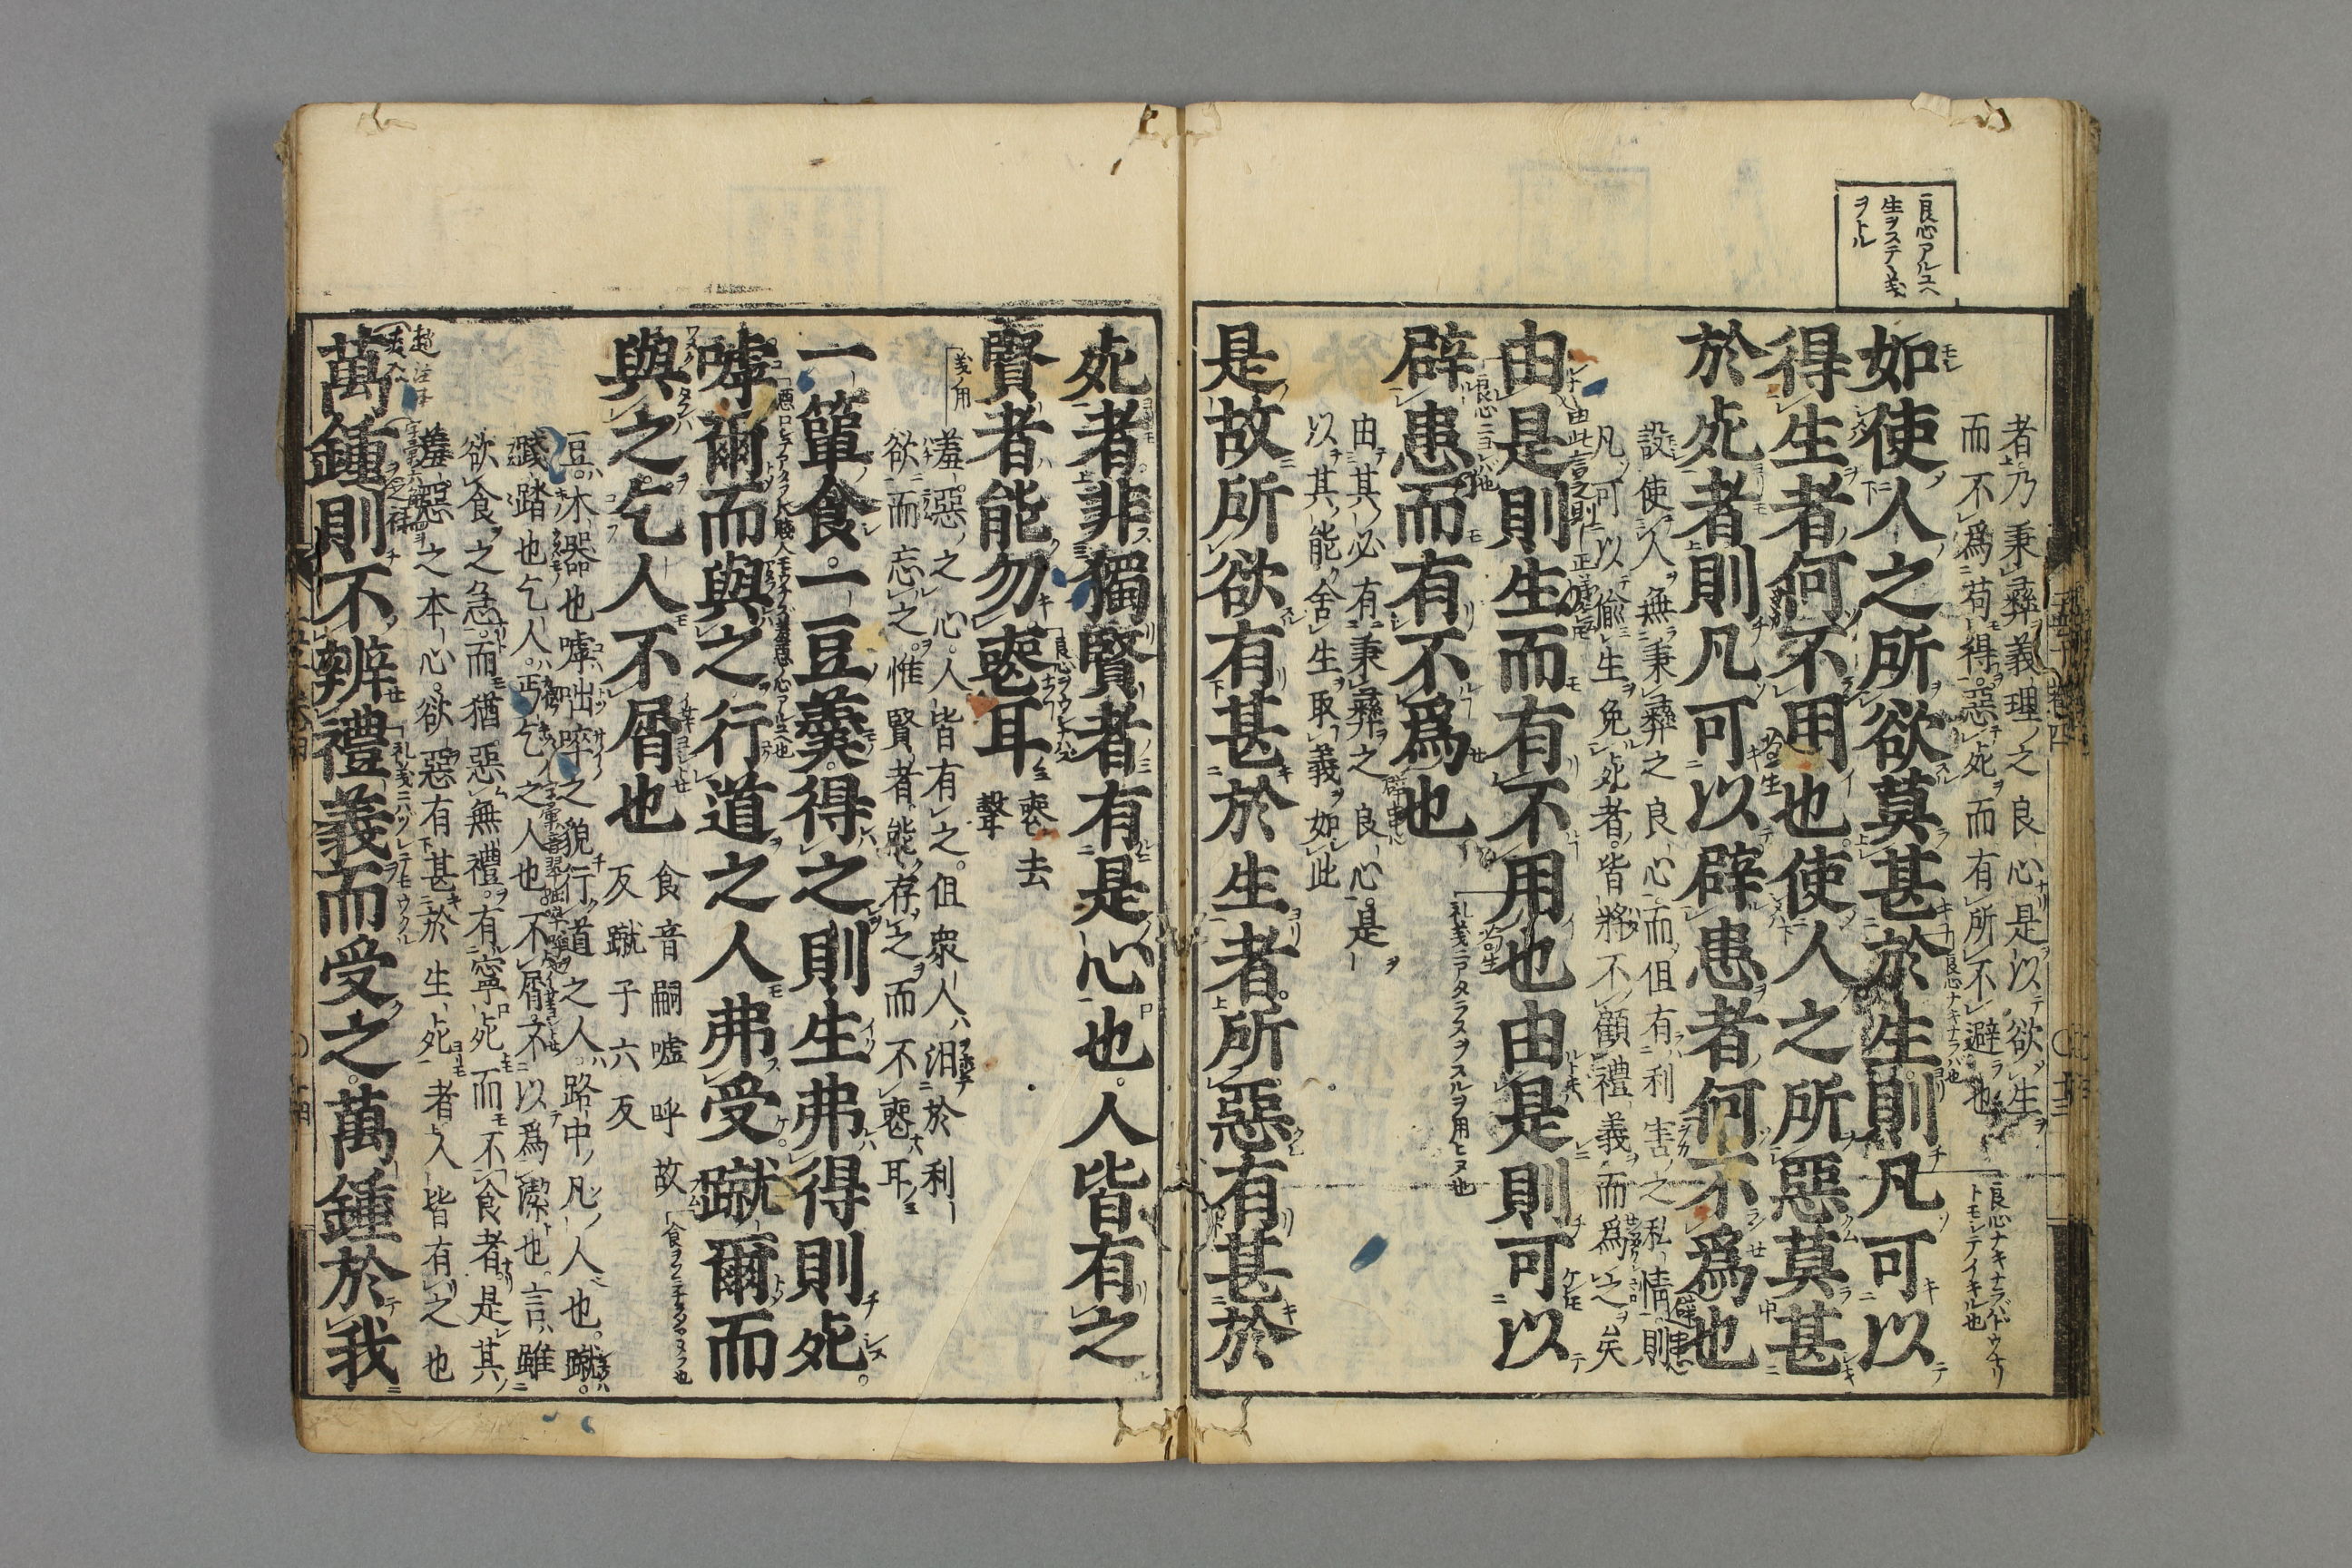 良心アルユヘ
生ヲステヽ義
ヲトル
者乃秉彝義理之良心是以欲生
而不爲苟得惡死而有所不避也
良心ナキナラバドウナリ
トモシテイキル也
如使人之所欲莫甚於生則凡可以
得生者何不用也使人之所惡莫甚
於死者則凡可以辟患者何不爲也
設使人無秉彝之良心而但有利害之私情則
凡可以偸生免死者皆將不顧禮義而爲之矣
由是則生而有不用也由是則可以
辟患而有不爲也
由其必有秉彝之良心是
以其能舍生取義如此
是故所欲有甚於生者所惡有甚於
死者非獨賢者有是心也人皆有之
賢者能勿喪耳
喪去
聲
羞惡之心人皆有之但衆人汨於利
欲而忘之惟賢者能存之而不喪耳
一簞食一豆羹得之則生弗得則死
嘑爾而與之行道之人弗受蹴爾而
與之乞人不屑也
食音嗣嘑呼故
反蹴子六反
豆木器也嘑咄啐之貌行道之人路中凡人也蹴
踐踏也乞人丐乞之人也不屑不以爲潔也言雖
欲食之急而猶惡無禮有寧死而不食者是其
羞惡之本心欲惡有甚於生死者人皆有之也
萬鍾則不辨禮義而受之萬鍾於我